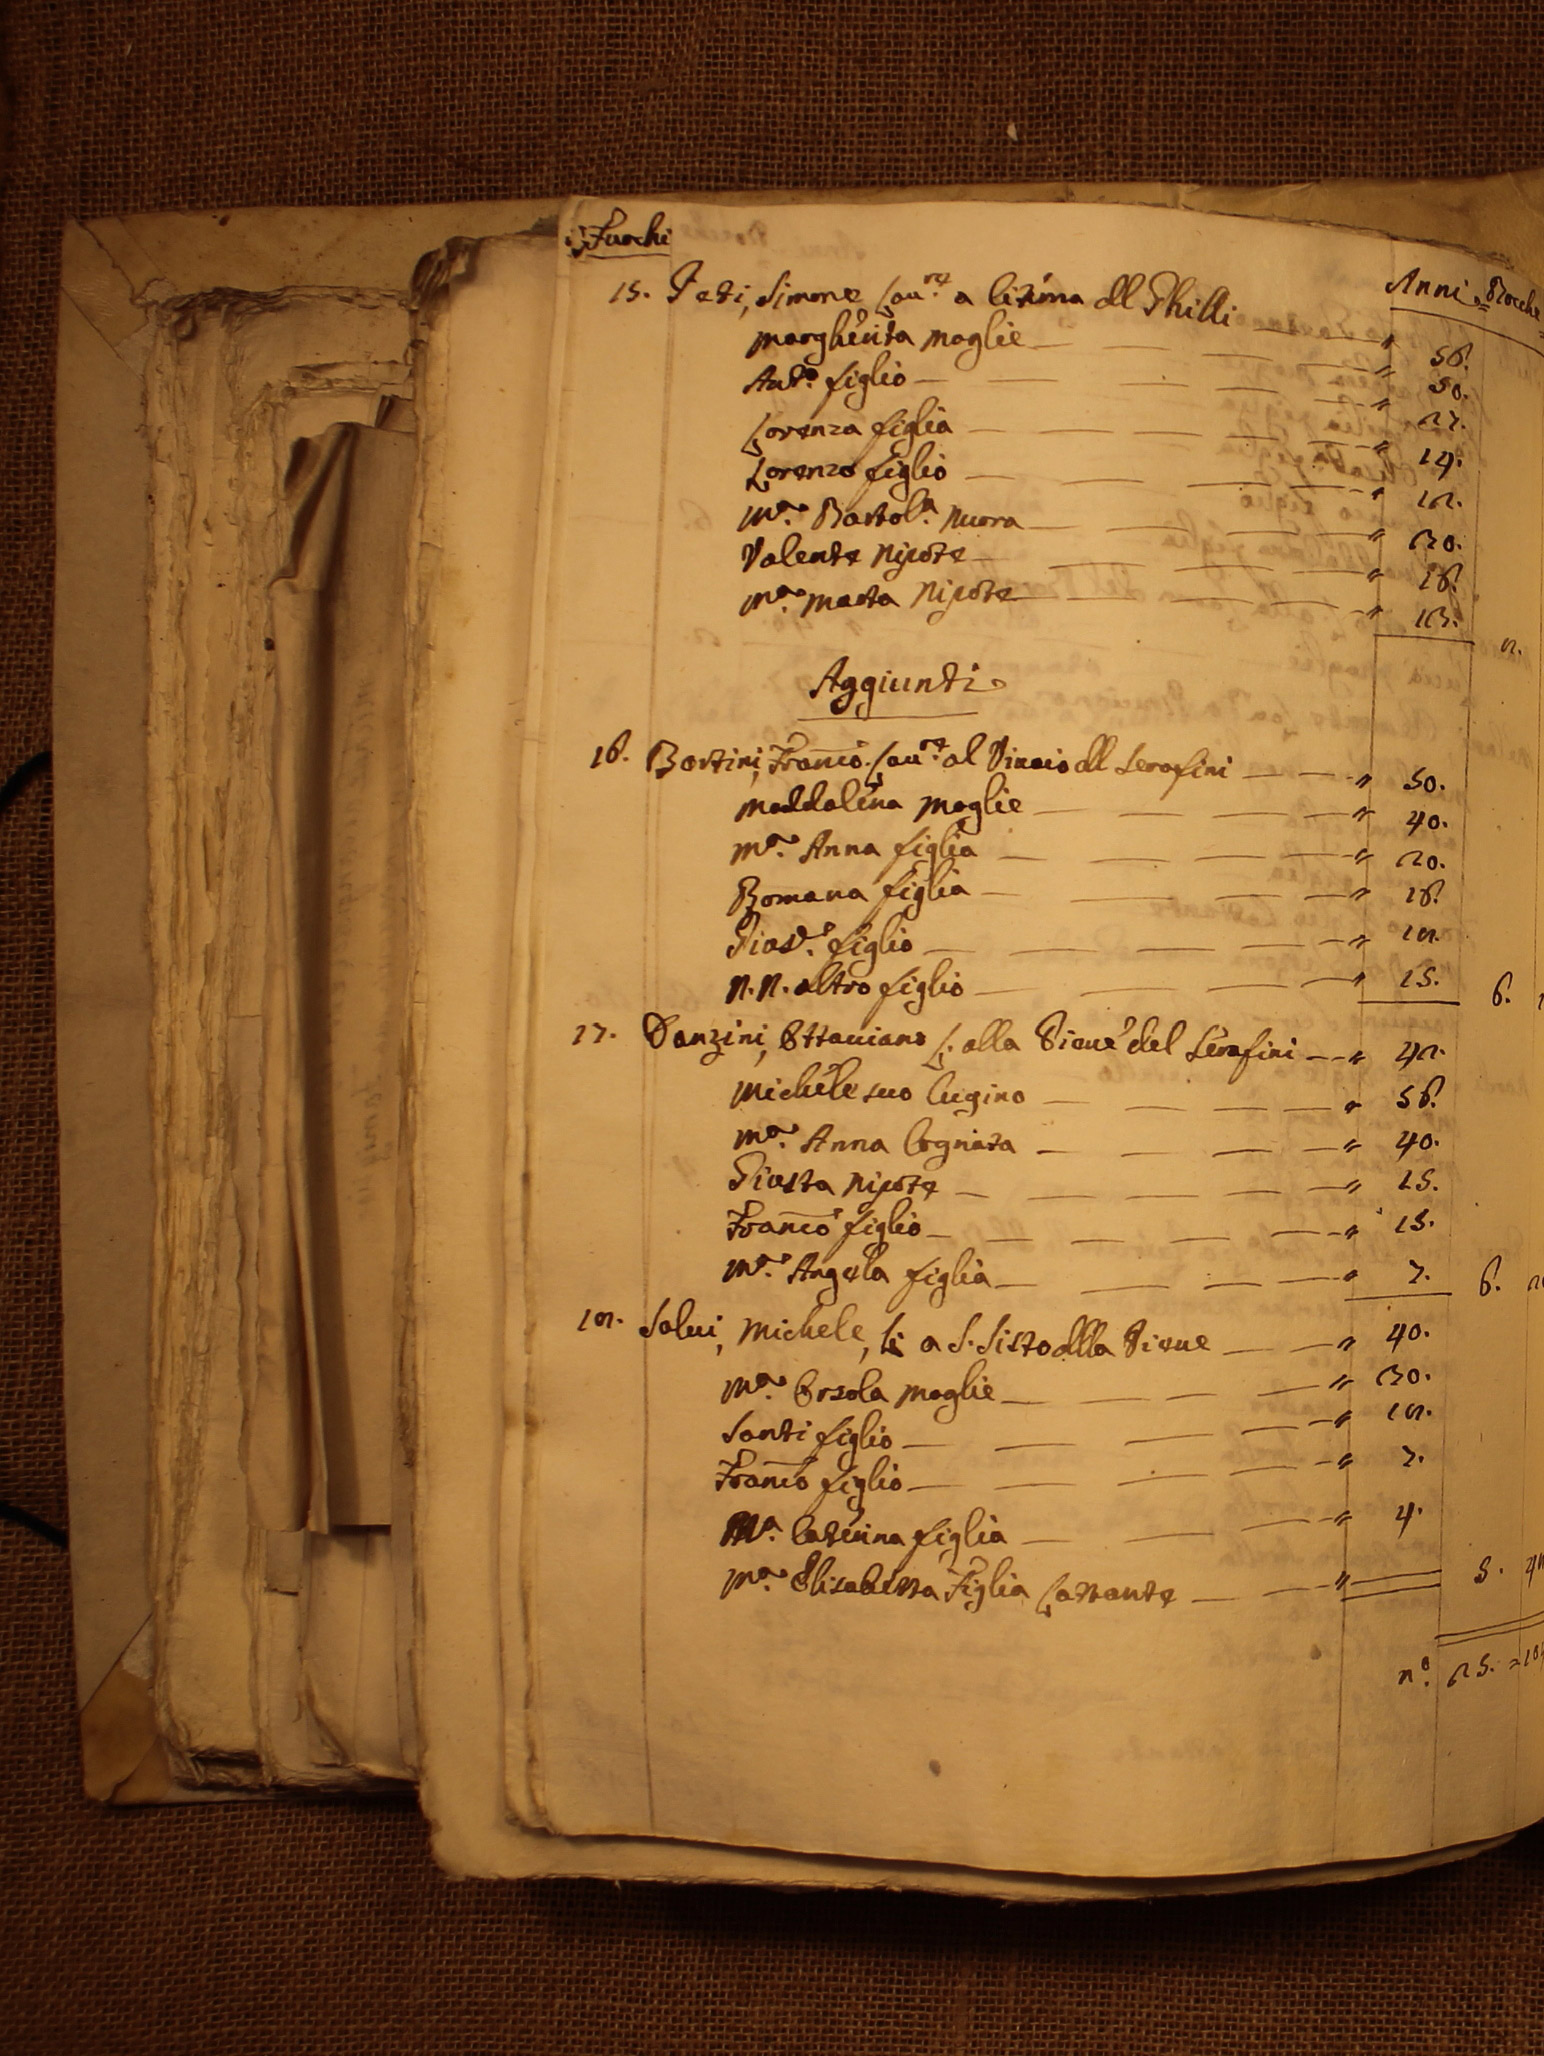 Fuochi
Anni = Bocche =
15. Feti, Simone Lau.re a Citerna dell Ghilli
Margherita moglie — 56.
Ant.o figlio — 50.
Lorenza figlia — 27.
Lorenzo figlio — 14.
M.a Bartol.a Nuora — 30.
Valente Nipote — 16.
M.a Marta Nipote — 13. 8.
Aggiunti
16. Bartini, Franco. Lau.re al Vinaio dell Serafini — 50.
Maddalena Moglie — 40.
M.a Anna figlia — 20.
Romana figlia — 16.
Giov.e figlio —
N.N. altro figlio — 15. 6.
17. Danzini, Ottaviano L. alla Pieve del Serafini — 42.
Michele suo Cugino — 56.
M.a Anna Cognata — 40.
Giusta Nipote — 15.
Franco figlio — 13.
M.a Angela figlia — 7. 6.
18. Salvi, Michele, L. a S. Sisto della Pieve — 40.
M.a Orsola Moglie — 30.
Santi figlio —
Franco figlio — 7.
M.a Caterina figlia — 4.
M.a Elisabetta Figlia Lattante — 5.
n.o 25. =